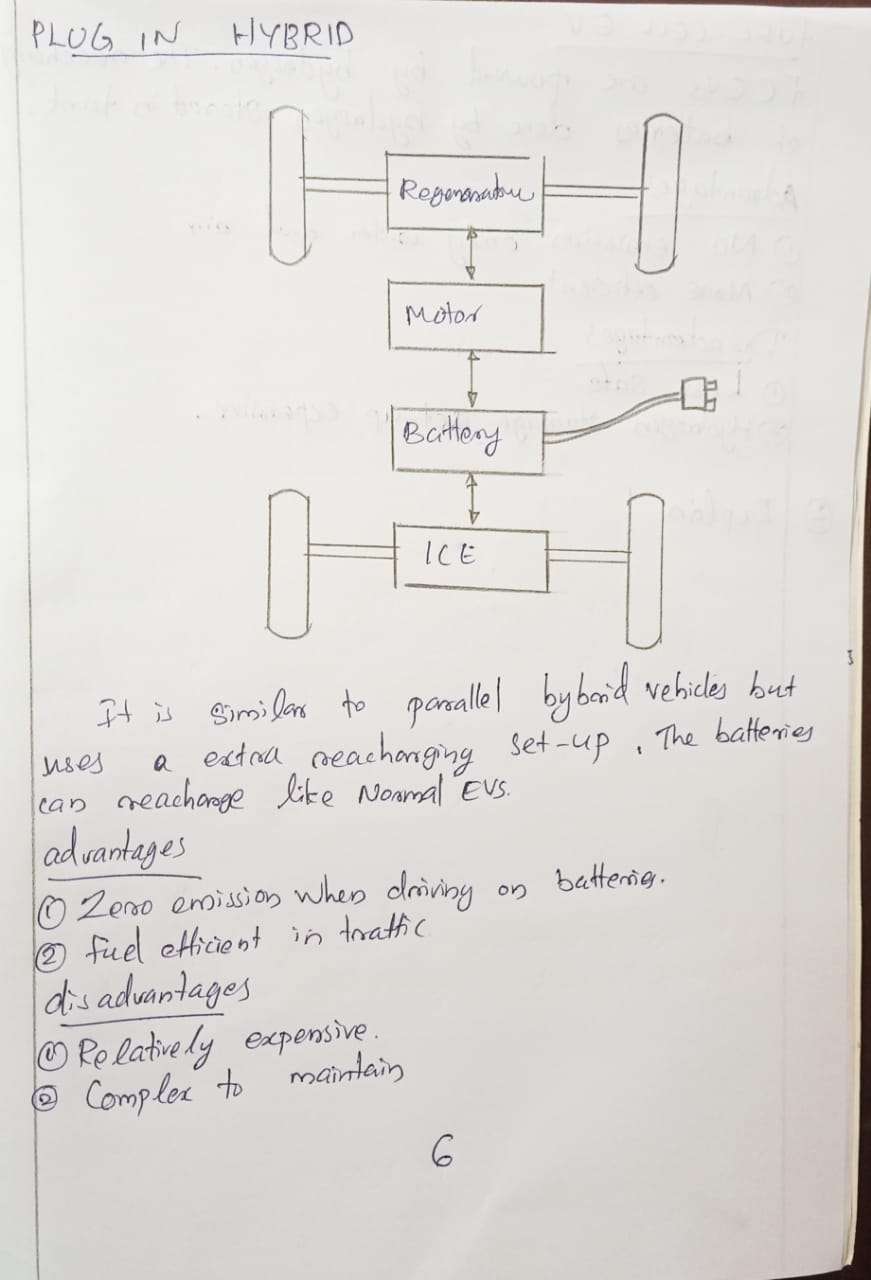 PLUG IN HYBRID
Regenerator
Motor
Battery
ICE
It is similar to parallel hybrid vehicles but
uses a extra reacharging set-up. The batteries
can reacharge like Normal EVs.
advantages
① Zero emission when driving on batteries.
② fuel efficient in traffic
disadvantages
① Relatively expensive.
② Complex to maintain
6